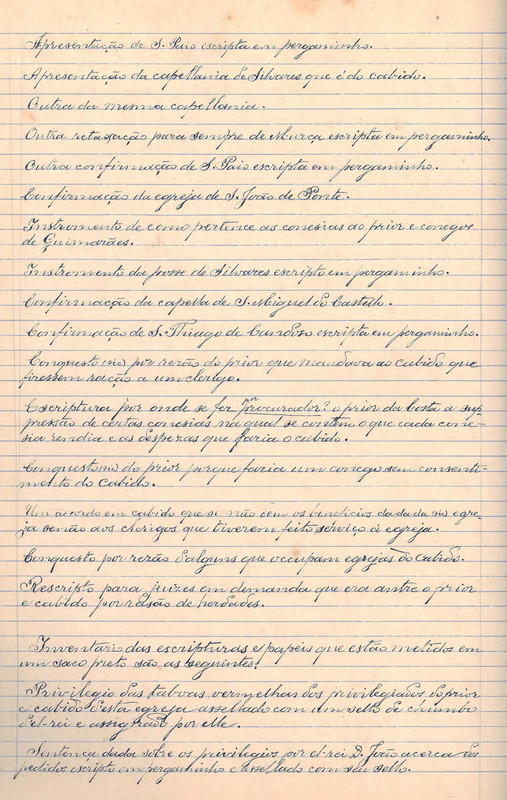 Apresentação de S. Paio escripta em pergaminho.
Apresentação da capellania de Silvares que é do cabido.
Outra da mesma capellania.
Outra retaxação para sempre de Murça escripta em pergaminho.
Outra confirmação de S. Paio escripta em pergaminho.
Confirmação da egreja de S. João de Ponte.
Instromento de como pertence as conesias ao prior e conegos
de Guimarães.
Instromento da posse de Silvares escripto em pergaminho.
Confirmação da capella de S. Miguel do Castello.
Confirmação de S. Thiago de Candoso escripta em pergaminho.
Conquesto (sic) por rezão do prior que mandava ao cabido que
fizessem ração a um clerigo.
Escriptura por onde se fez por procurador? o prior da Costa a sup-
pressão de certas conesias na qual se contem o que cada cone-
sia rendia e as despezas que fazia o cabido.
Conquesto (sic) do prior porque fazia um conego sem consenti-
mento do cabido.
Um acordo em cabido que se não dem os beneficios da da (sic) egre-
ja senão aos clerigos que tiverem feito serviço á egreja.
Conquesto por rezão d'alguns que occupam egrejas do cabido.
Rescripto para juizes em demanda que era antre o prior
e cabido por razão de herdades.
Inventario das escripturas e papeis que estão metidos em
um saco preto são as seguintes:
Privilegio das taboas vermelhas dos privilegiados do prior
e cabido d'esta egreja assellado com um sello de chumbo
d'el-rei e assignado por elle.
Sentença dada sobre os privilegios por el-rei D. João acerca dos
pedidos escripto em pergaminho e assellado com seu sello.